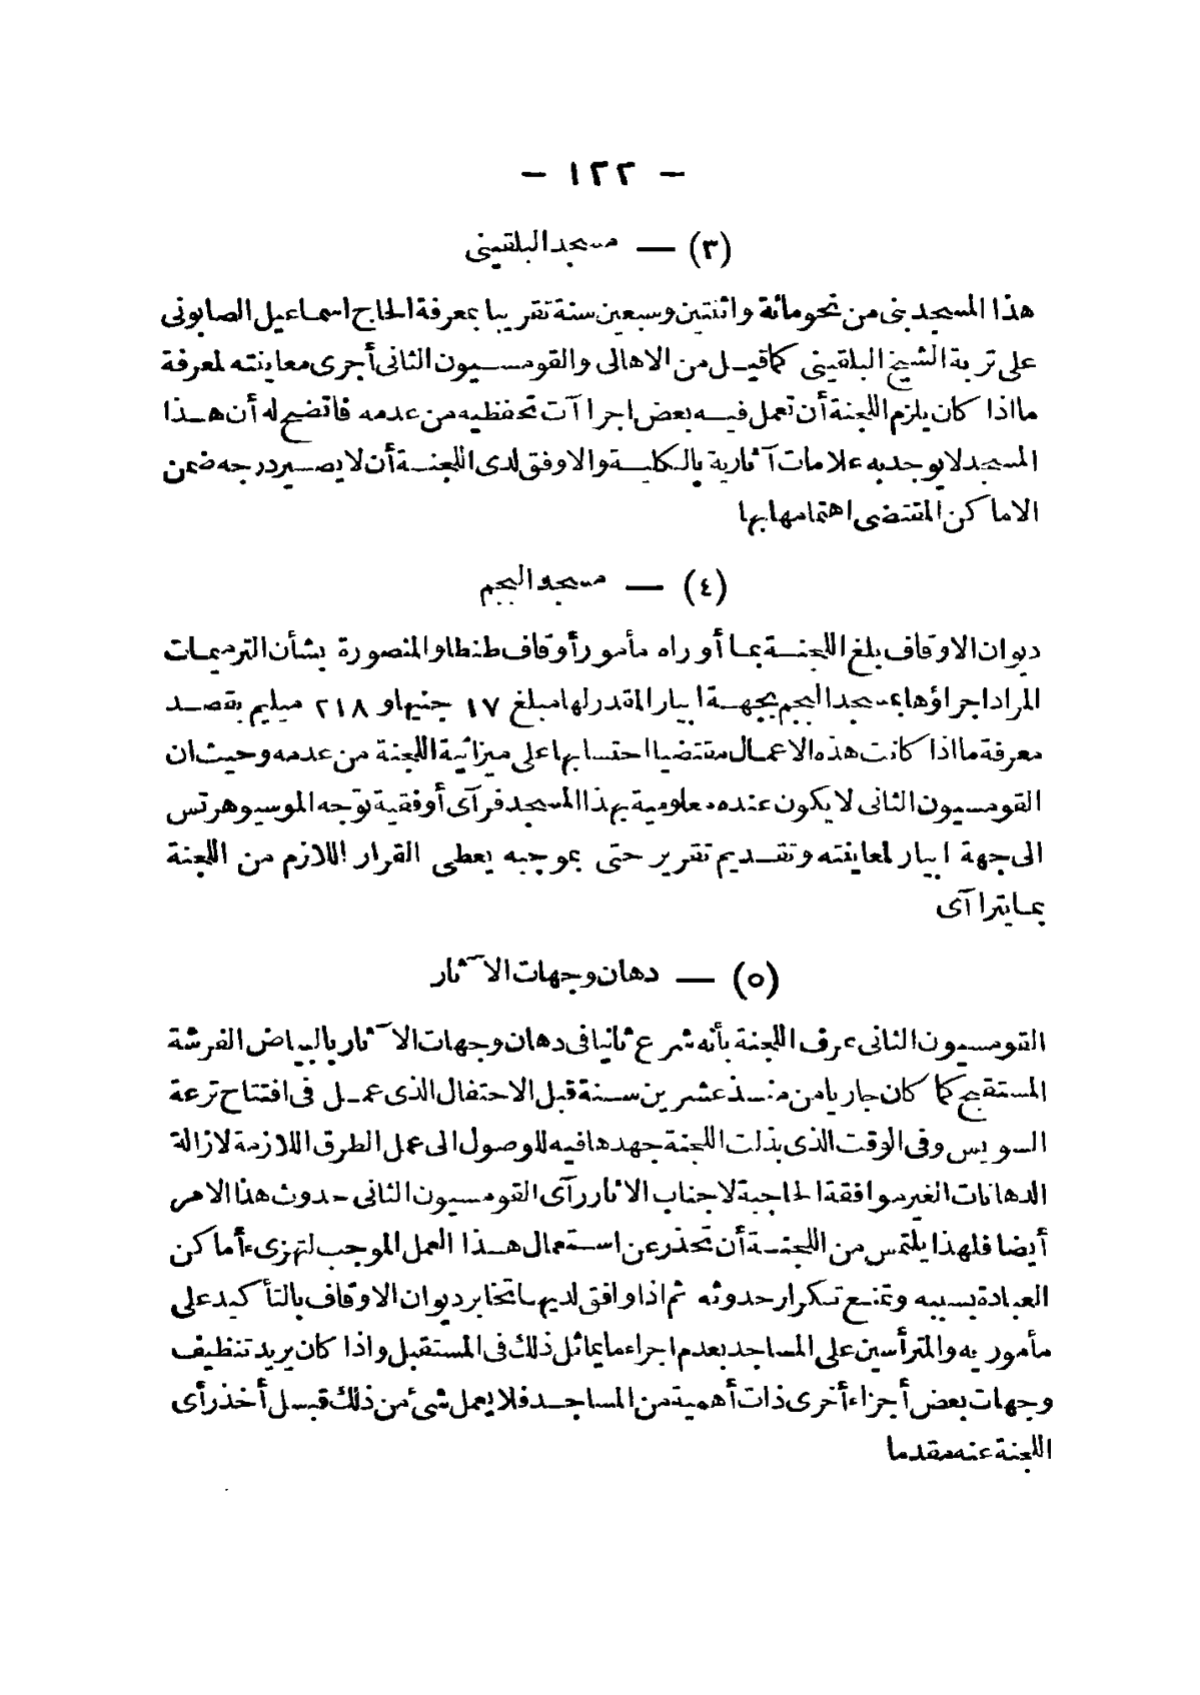 - ١٢٢ -
(٣) — مسجد البلقينى
هذا المسجد بنى من نحو مائة واثنتين وسبعين سنة تقريبا بمعرفة الحاج اسماعيل الصابونى
على تربة الشيخ البلقينى كما قيل من الاهالى والقومسيون الثانى أجرى معاينته لمعرفة
ما اذا كان يلزم اللجنة أن تعمل فيه بعض اجراآت تحفظيه من عدمه فاتضح له أن هذا
المسجد لا يوجد به علامات آثارية بالكلية والاوفق لدى اللجنة أن لا يصير درجه ضمن
الاماكن المقتضى اهتمامها بها
(٤) — مسجد البجم
ديوان الاوقاف بلغ اللجنة بما أوراه مأمور أوقاف طنطا والمنصورة بشأن الترميمات
المراد اجراؤها بمسجد البجم بجهة ابيار المقدر لها مبلغ ١٧ جنيها و ٢١٨ مليم بقصد
معرفة ما اذا كانت هذه الاعمال مقتضيا احتسابها على ميزانية اللجنة من عدمه وحيث ان
القومسيون الثانى لا يكون عنده معلومية بهذا المسجد فرآى أوفقية توجه الموسيو هرتس
الى جهة ابيار لمعاينته وتقديم تقرير حتى بموجبه يعطى القرار اللازم من اللجنة
بما يترا آى
(٥) — دهان وجهات الآثار
القومسيون الثانى عرف اللجنة بأنه شرع ثانيا فى دهان وجهات الآثار بالبياض الفرشة
المستقبح كما كان جاريا من منذ عشرين سنة قبل الاحتفال الذى عمل فى افتتاح ترعة
السويس وفى الوقت الذى بذلت اللجنة جهدها فيه للوصول الى عمل الطرق اللازمة لازالة
الدهانات الغير موافقة الحاجبة لاجناب الاثار رآى القومسيون الثانى حدوث هذا الامر
أيضا فلهذا يلتمس من اللجنة أن تحذر عن استعمال هذا العمل الموجب لتهزىء أماكن
العبادة بسببه وتمنع تكرار حدوثه ثم اذا وافق لديها تخابر ديوان الاوقاف بالتأكيد على
مأموريه والمترأسين على المساجد بعدم اجراء ما يماثل ذلك فى المستقبل واذا كان يريد تنظيف
وجهات بعض أجزاء أخرى ذات أهمية من المساجد فلا يعمل شئ من ذلك قبل أخذ رأى
اللجنة عنه مقدما